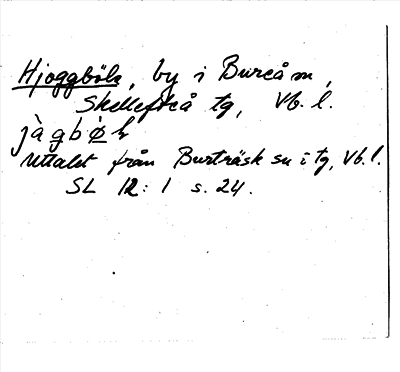 Hjoggböle, by i Bureå sn,
Skellefteå tg, Vb. l.
jàgbøl
Uttalet från Burträsk sn i tg, Vb. l.
SL 12:1 s. 24.